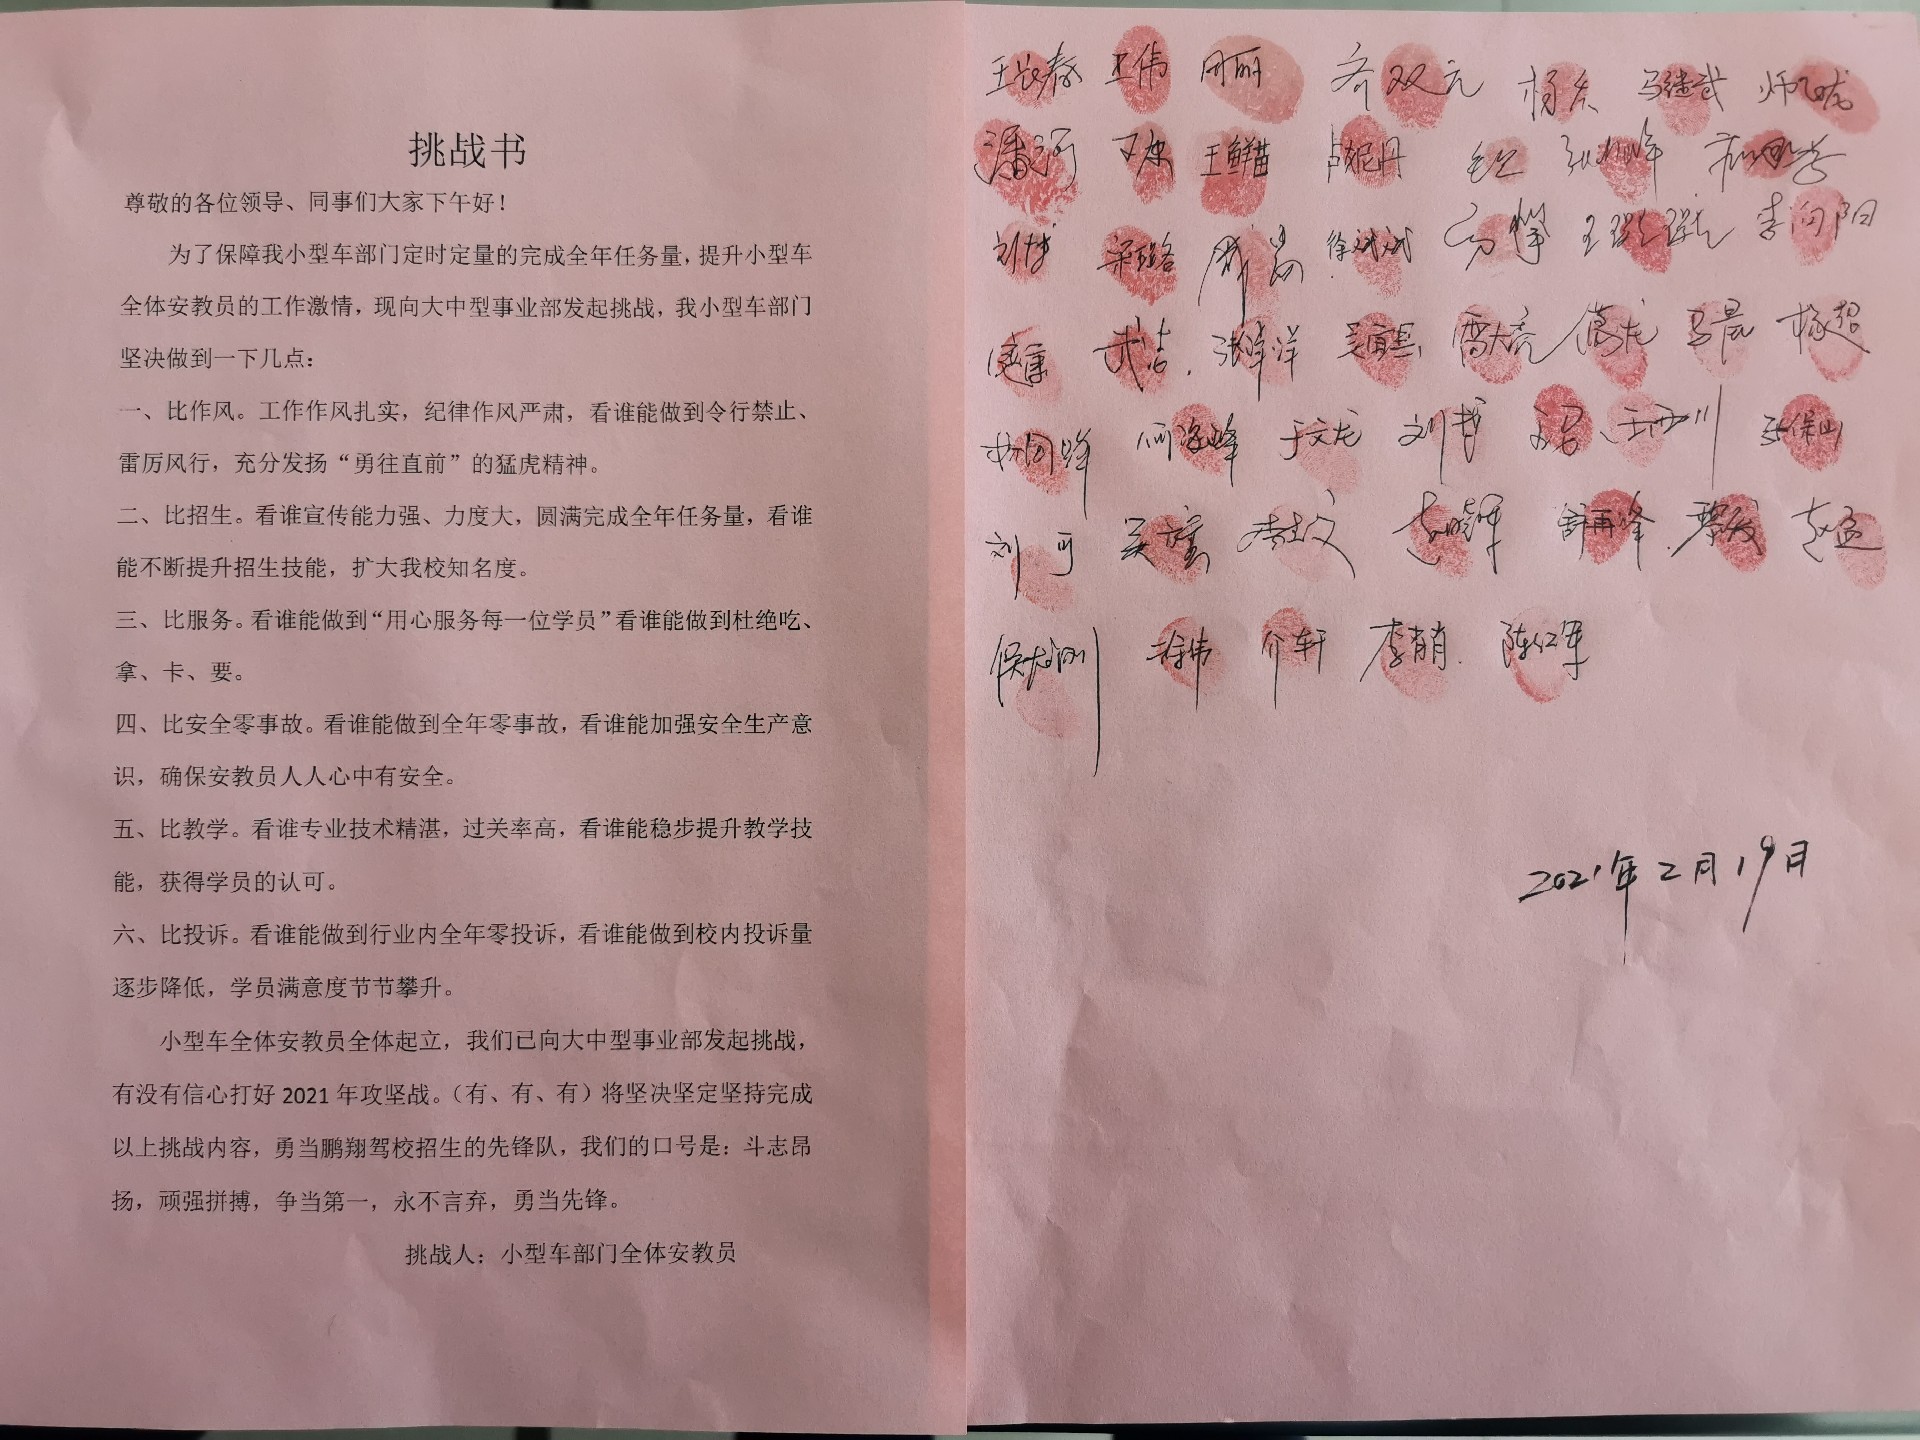 挑战书
尊敬的各位领导、同事们大家下午好！
为了保障我小型车部门定时定量的完成全年任务量，提升小型车
全体安教员的工作激情，现向大中型事业部发起挑战，我小型车部门
坚决做到一下几点：
一、比作风。工作作风扎实，纪律作风严肃，看谁能做到令行禁止、
雷厉风行，充分发扬“勇往直前”的猛虎精神。
二、比招生。看谁宣传能力强、力度大，圆满完成全年任务量，看谁
能不断提升招生技能，扩大我校知名度。
三、比服务。看谁能做到“用心服务每一位学员”看谁能做到杜绝吃、
拿、卡、要。
四、比安全零事故。看谁能做到全年零事故，看谁能加强安全生产意
识，确保安教员人人心中有安全。
五、比教学。看谁专业技术精湛，过关率高，看谁能稳步提升教学技
能，获得学员的认可。
六、比投诉。看谁能做到行业内全年零投诉，看谁能做到校内投诉量
逐步降低，学员满意度节节攀升。
小型车全体安教员全体起立，我们已向大中型事业部发起挑战，
有没有信心打好 2021 年攻坚战。（有、有、有）将坚决坚定坚持完成
以上挑战内容，勇当鹏翔驾校招生的先锋队，我们的口号是：斗志昂
扬，顽强拼搏，争当第一，永不言弃，勇当先锋。
挑战人：小型车部门全体安教员
王伟 周丽 乔双元 马继武
潘河 王鲜苗
刘博 梁璐 徐斌斌 李向阳
武洁 张海洋 雷大亮 葛龙 马晨 杨超
于文龙 刘哲 王西川 张保山
刘可 赵晓军 薛再峰 赵孟
徐伟 介轩 李肖 陈红军
2021年2月19日